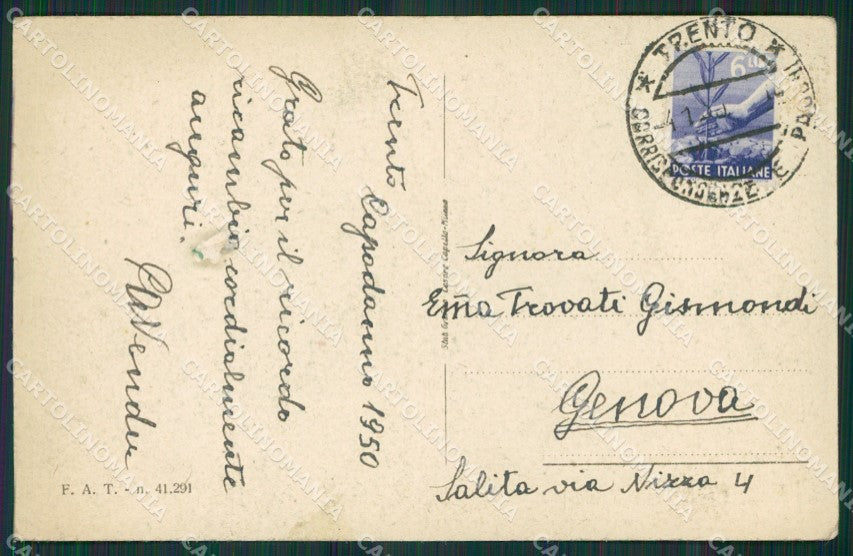 Trento Capodanno 1950
Grato per il ricordo
ricambio cordialmente
auguri.
F. A. T. - n. 41.291
TRENTO
CORRISPONDENZE E PA
4.1.
6
POSTE ITALIANE
Signora
Emª Trovati Gismondi
Genova
Salita via Nizza 4
CARTOLINOMANIA